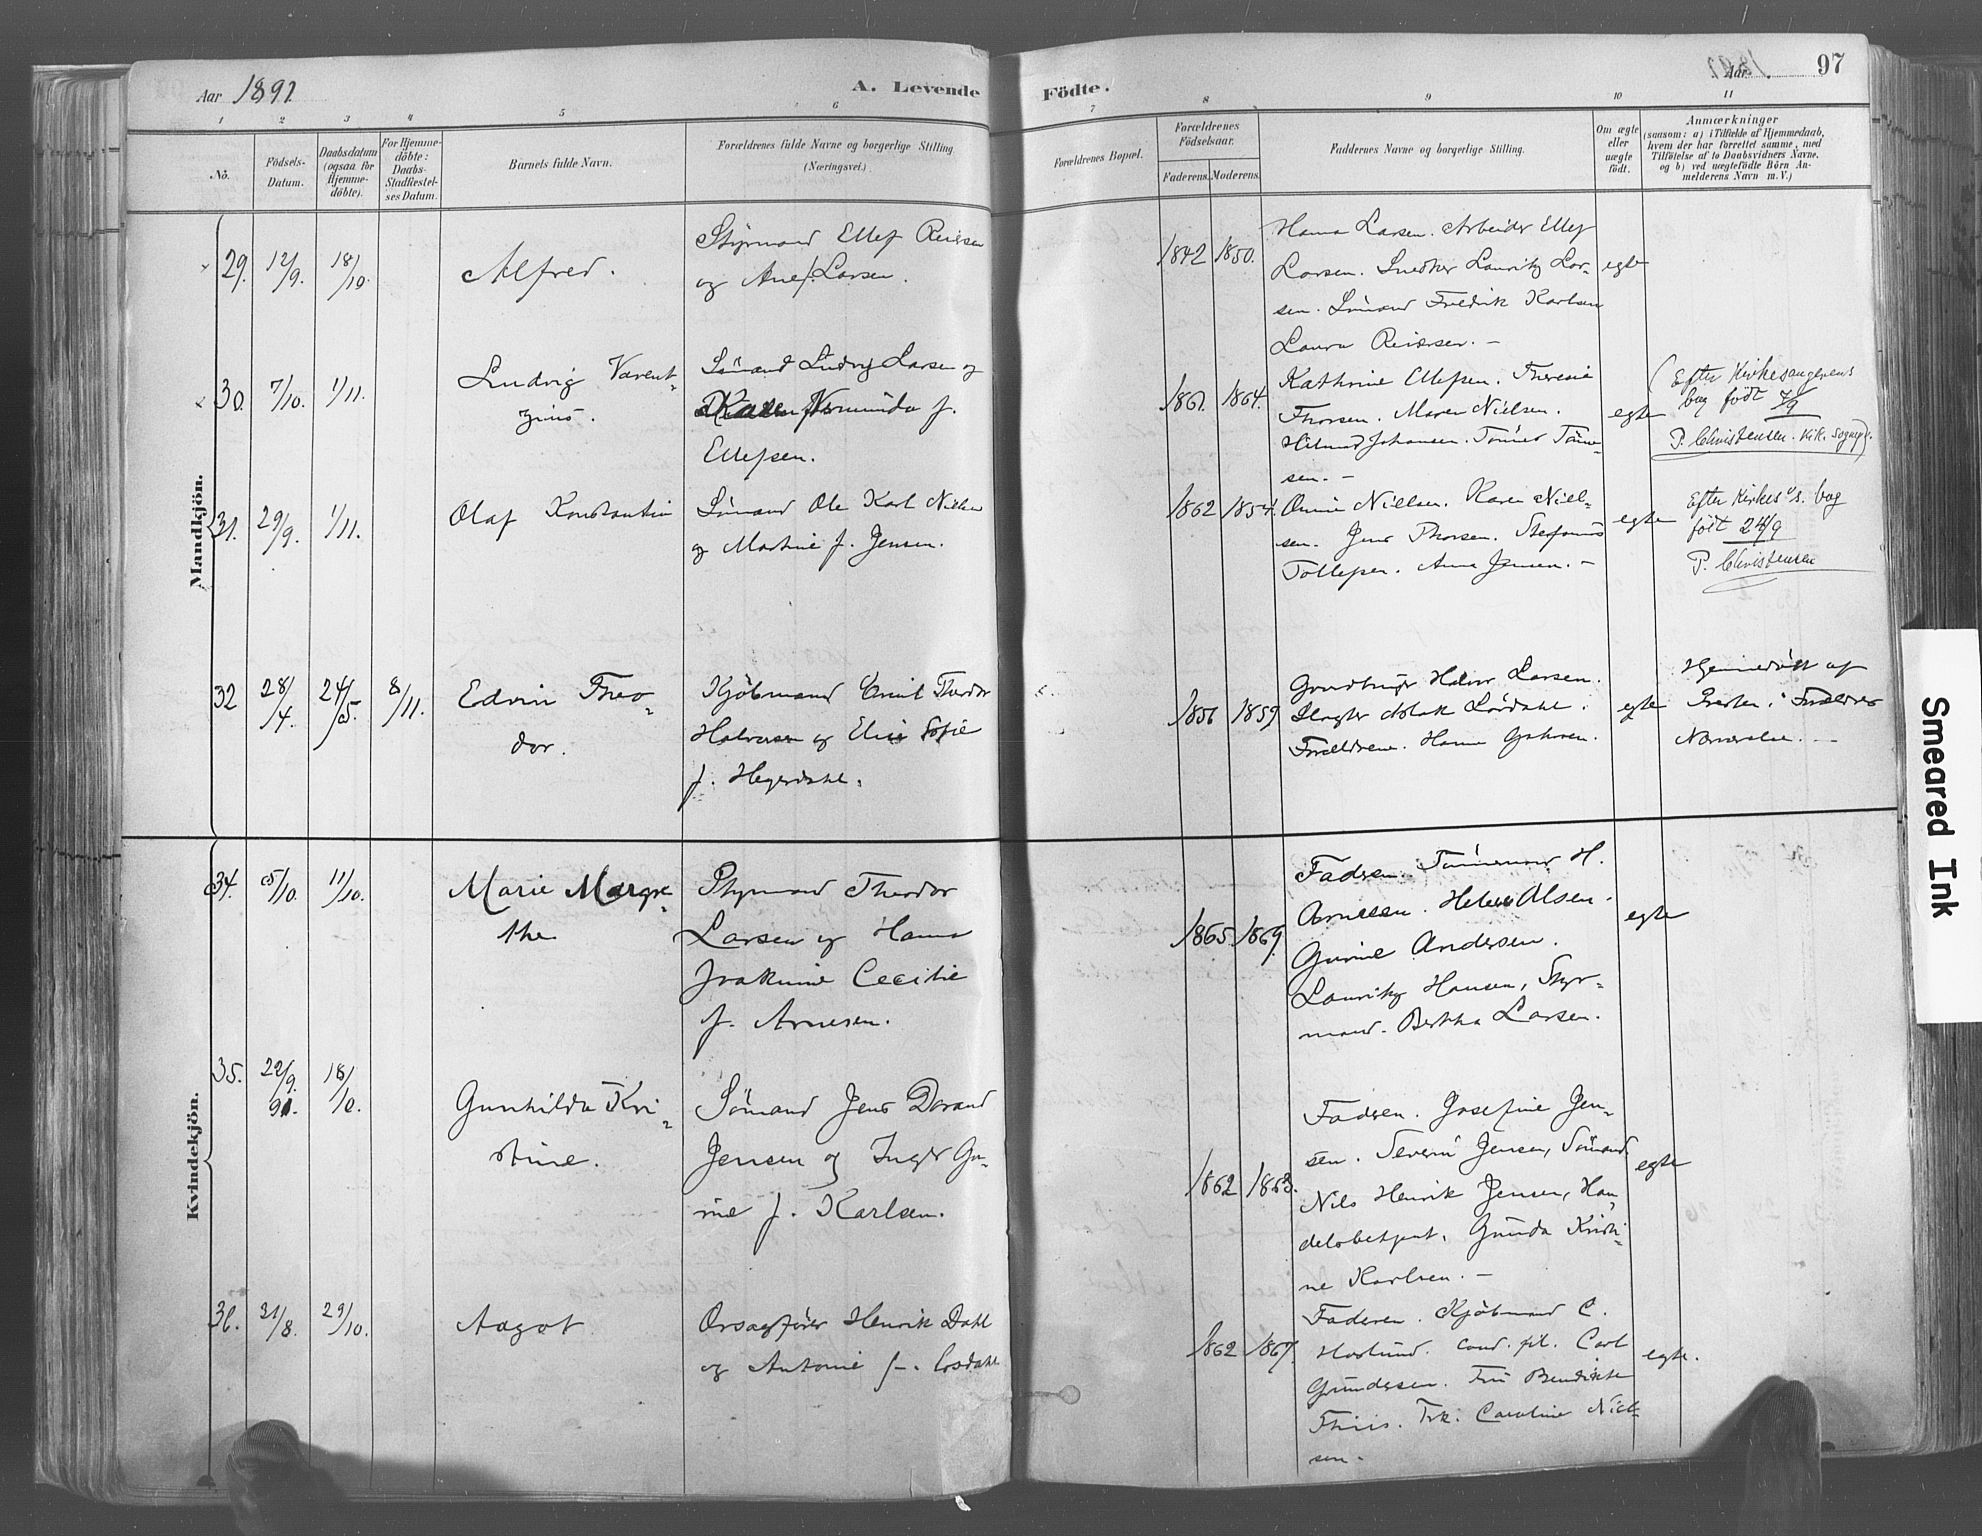 Aar 1891
A. Levende
Födte.
Aar
97
1
2
3
4
5
6
7
8
9
10
11
No.
Födsels-
Datum.
Daabsdatum
(ogsaa for
Hjemme-
döbte).
For Hjemme-
döbte:
Daabs-
Stadfæstel-
ses Datum.
Barnets fulde Navn.
Forældrenes fulde Navne og borgerlige Stilling
(Næringsvei.)
Forældrenes Bopæl.
Forældrenes
Födselsaar.
Faderens.
Moderens.
Faddernes Navne og borgerlige Stilling.
Om ægte
eller
uægte
födt.
Anmærkninger
(saasom: a) i Tilfælde af Hjemmedaab,
hvem der har forrettet samme, med
Tilföielse af to Daabsvidners Navne,
og b) ved uægtefödte Börn An-
melderens Navn m. V.)
Mandkjön.
29. 12/9. 18/10. Alfred.
Styrmand Ellef Reiersen
og Ane f. Larsen.
1842 1850.
Hanna Larsen. Arbeider Ellef
Larsen. Snedker Lauritz Lar-
sen. Sömand Fredrik Karlsen
Laura Reiersen. –
egte
30. 7/10. 1/11. Ludvig Varent-
zius.
Sömand Ludvig Larsen og
f.
Ellefsen.
1861. 1864.
Kathrine Ellefsen. Theresia
Thorsen. Maren Nielsen.
Johansen. Tönnes Tönne-
sen. –
egte
(Efter Kirkesangerens
bog födt 7/9
P. Christensen. Sognepr.)
31. 29/9. 1/11. Olaf Konstantin
Sömand Ole Karl Nielsen
og Martine f. Jensen.
1862 1854.
Nielsen. Karen Niel-
sen. Jens Thorsen. Stefanus
Tollefsen. Anna Jensen. –
egte
Efter Kirkes's. bog
födt 24/9
P. Christensen
32 28/4. 24/5. 8/11. Edvin Theo-
dor.
Kjöbmand Emil Theodor
Halvorsen og Elise Sofie
f. Hegerdahl.
1856 1859
Larsen.
Slagter Aslak Lördahl.
Forældrene. Hanna
egte
Hjemmedöbt af
Presten i Forældres
Nærværelse. –
Kvindekjön.
34. 5/10. 11/10. Marie Margre-
the
Styrmand Theodor
Larsen og Hanna
Joakime Cecilie
f. Arnesen.
1865. 1869.
Faderen. Tömmermand H.
Arnesen. Helene Olsen.
Gurine Andersen.
Lauritz Hansen, Styr-
mand. Bertha Larsen.
egte
35. 22/9. 91. 18/10. Gunhilda Kri-
stine.
Sömand Jens Dorand
Jensen og Inger Gu-
rine f. Karlsen.
1862 1863.
Faderen. Josefine Jen-
sen. Severin Jensen, Sömand
Nils Henrik Jensen, Han-
delsbetjent. Gunda Kristi-
ne Karlsen. –
egte
36. 31/8. 29/10. Aagot
Orsagförer Henrik Dahl
og Antonie f. Losdahl
1862 1867.
Faderen. Kjöbmand C.
Haslund. cand. fil. Carl
Gundersen. Fru Bendikte
Thiis. Frk. Caroline Niel-
sen.
egte.
Smeared Ink